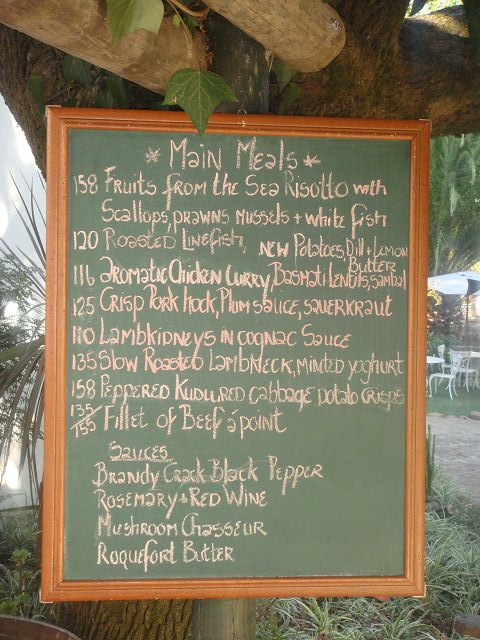 * Main Meals *
158 Fruits from the Sea Risotto with
Scallops, prawns mussels + white fish
120 Roasted Linefish, new Potatoes, Dill + Lemon
Butter
116 Aromatic Chicken Curry, Basmati Lentils, sambal
125 Crisp Pork hock, Plum sauce, sauerkraut
110 Lambkidneys in cognac Sauce
135 Slow Roasted Lambneck, minted yoghurt
158 Peppered Kudu, red cabbage potato crisps
135/155 Fillet of Beef á point
Sauces
Brandy Crack Black Pepper
Rosemary + Red Wine
Mushroom Chasseur
Roquefort Butter